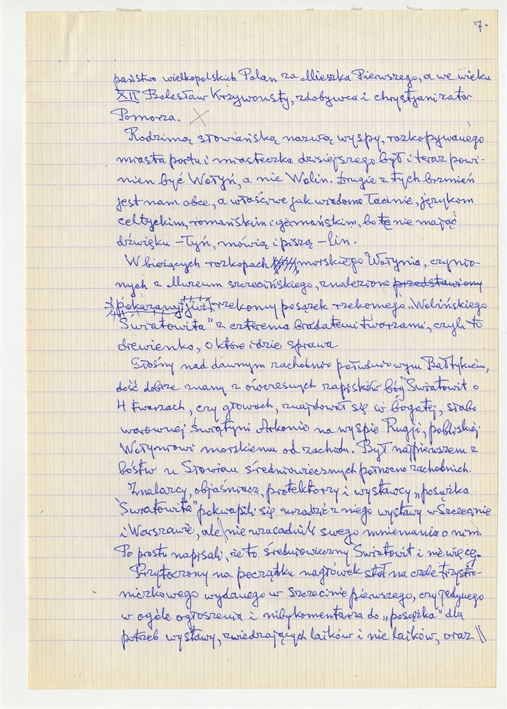 7.
państwo wielkopolskich Polan za Mieszka Pierwszego, a we wieku
XII Bolesław Krzywousty, zdobywca i chrystjanizator
Pomorza.
Rodzimą słowiańską nazwą wyspy, rozkopywanego
miasta portu i miasteczka dzisiejszego był i teraz powi-
nien być Wołyń, a nie Wolin. Drugie z tych brzmień
jest nam obce, a właściwe jak wiadomo łacinie, językom
celtyckim, romańskim i germańskim, bo te nie mając
dźwięku -łyń, mówią i piszą -lin.
W bieżących rozkopach morskiego Wołynia, czynio-
nych z Muzeum szczecińskiego, znaleziono przedstawiony
pokazany już rzekomy posążek rzekomego "Wolińskiego
Światowita" z czterema brodatemi twarzami, czyli to
drewienko, o które idzie sprawa.
Słośny nad dawnym zachodnio południowym Bałtykiem,
dość dobrze znany z ówczesnych zapisków bóg Światowit o
4 twarzach, czy głowach, znajdował się w bogatej, słabo
warownej świątyni Arkonie na wyspie Rugji, pobliskiej
Wołyniowi morskiemu od zachodu. Był najpierwszem z
bóstw u Słowian średniowiecznych północno zachodnich.
Znalazcy, objaśniacz, protektorzy i wystawcy "posążka
Światowita" pokwapili się urządzić z niego wystawy w Szczecinie
i Warszawie, ale nie uzasadnili swego mniemania o nim.
Po prostu napisali, że to średniowieczny Światowit i nie więcej.
Przytoczony na początku nagłówek stoi na czele trzystro-
niczkowego wydanego w Szczecinie pierwszego, czy jedynego
w ogóle ogłoszenia i nibykomentarza do "posążka" dla
potrzeb wystawy, zwiedzających laików i nie laików, oraz